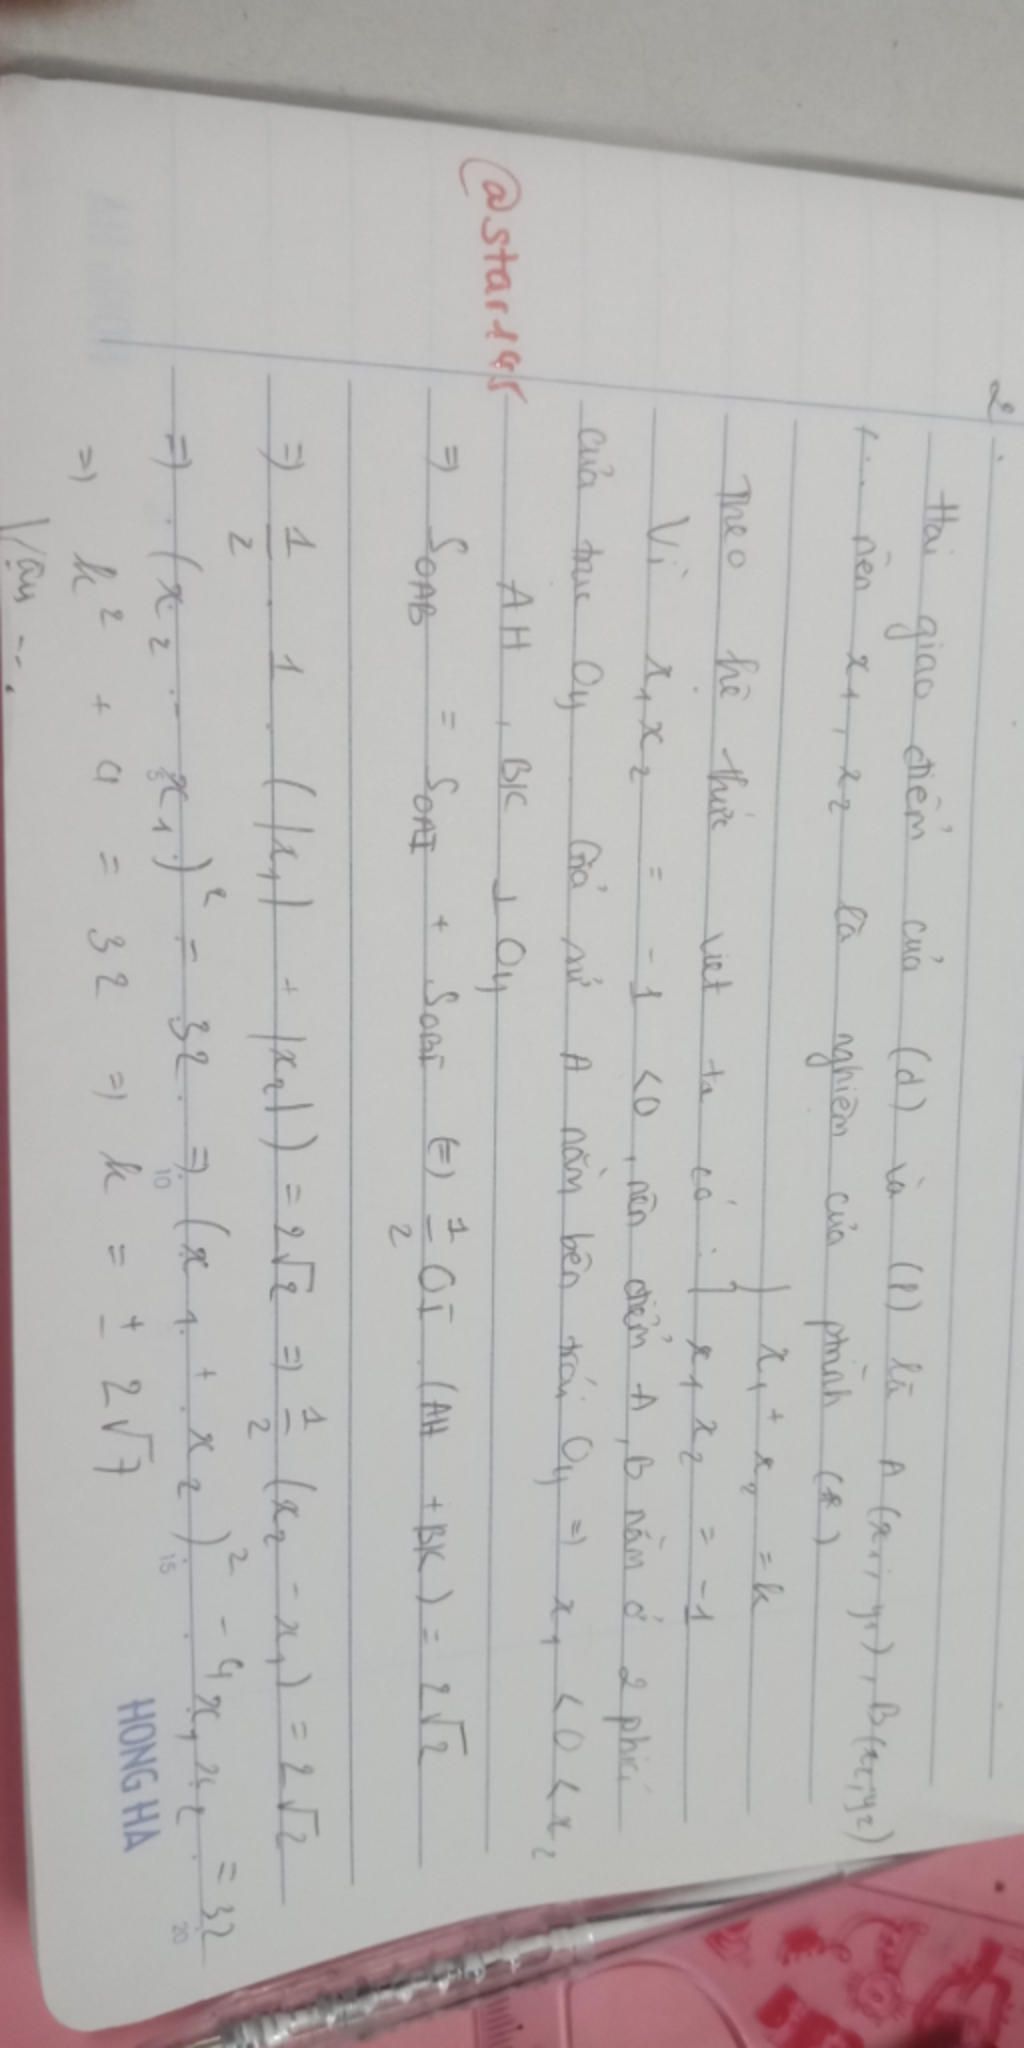 2
Hai giao điểm của (d) và (P) là A (x₁, y₁), B(x₂, y₂)
nên x₁, x₂ là nghiệm của ptrình (*)
Theo hệ thức viet ta có : { x₁ + x₂ = k
x₁ x₂ = -1
Vì x₁x₂ = -1 <0, nên điểm A, B nằm ở 2 phía
của trục Oy Giả sử A nằm bên trái Oy => x₁ < 0 < x₂
AH, BK ⊥ Oy
@star145
=> S_OAB = S_OAI + S_OBI (=) 1/2 OI . (AH + BK) = 2√2
=> 1/2 . 1 . (|x₁| + |x₂|) = 2√2 => 1/2 (x₂ - x₁) = 2√2
=> (x₂ - x₁)² = 32 => (x₁ + x₂)² - 4x₁x₂ = 32
=> k² + 4 = 32 => k = ± 2√7
Vậy ...
5 10 15 20
HONG HA